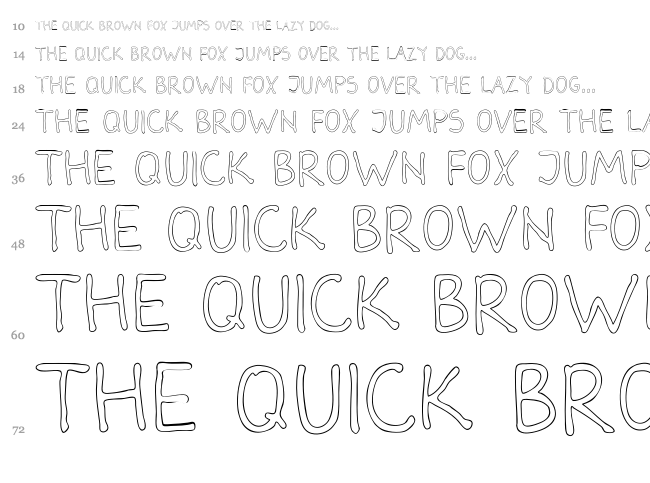 10 THE QUICK BROWN FOX JUMPS OVER THE LAZY DOG...
14 THE QUICK BROWN FOX JUMPS OVER THE LAZY DOG...
18 THE QUICK BROWN FOX JUMPS OVER THE LAZY DOG...
24 THE QUICK BROWN FOX JUMPS OVER THE LA
36 THE QUICK BROWN FOX JUMP
48 THE QUICK BROWN FOX
60 THE QUICK BROW
72 THE QUICK BRO